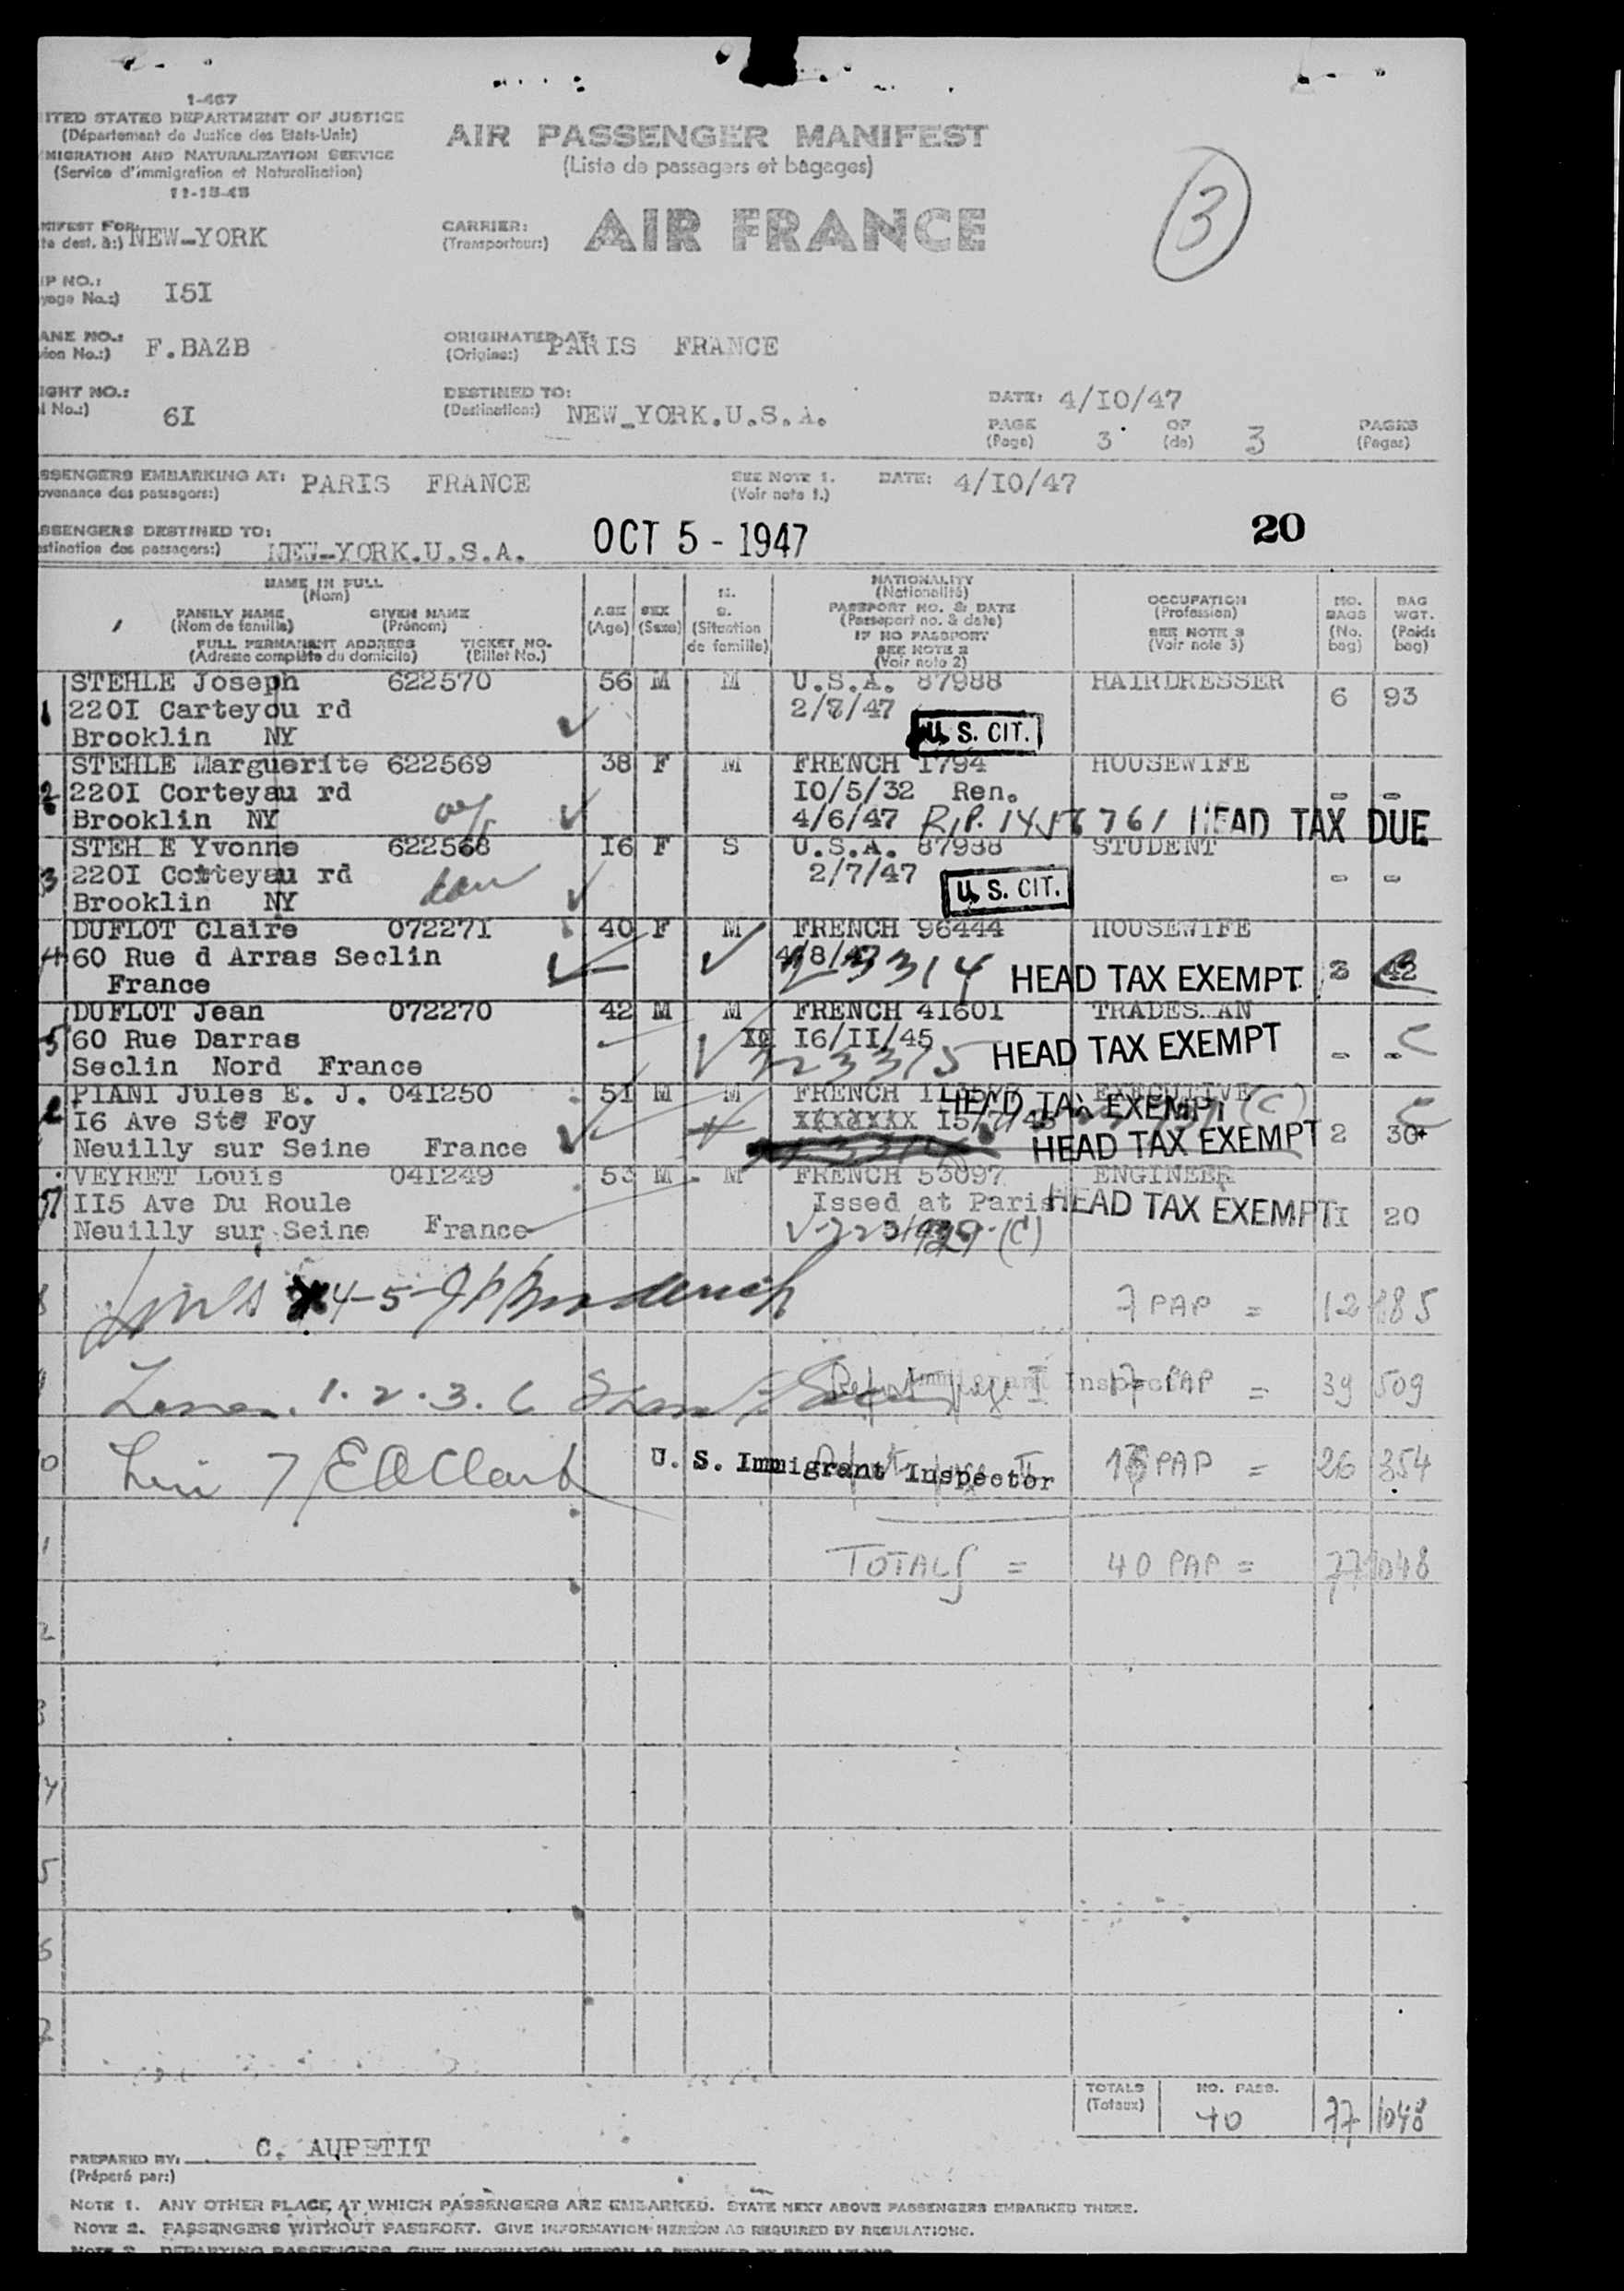 1-467
ITED STATES DEPARTMENT OF JUSTICE
(Département de Justice des Etats-Unis)
MIGRATION AND NATURALIZATION SERVICE
(Service d'immigration et Naturalisation)
11-15-45
AIR PASSENGER MANIFEST
(Liste de passagers et bagages)
3
NIFEST FOR:
te dest. à:) NEW-YORK
CARRIER:
(Transporteur:)
AIR FRANCE
IP NO.:
yage No.:) I5I
ANE NO.:
vion No.:) F.BAZB
ORIGINATED AT:
(Origine:) PARIS FRANCE
IGHT NO.:
l No.:) 6I
DESTINED TO:
(Destination:) NEW_YORK.U.S.A.
DATE: 4/IO/47
PAGE 3 OF 3 PAGES
(Page) (de) (Pages)
SSENGERS EMBARKING AT: PARIS FRANCE
ovenance des passagers:)
SEE NOTE 1.
(Voir note 1.)
DATE: 4/IO/47
SSENGERS DESTINED TO:
estination des passagers:) NEW-YORK.U.S.A.
OCT 5 - 1947
20
NAME IN FULL
(Nom)
FAMILY NAME GIVEN NAME
(Nom de famille) (Prénom)
FULL PERMANENT ADDRESS TICKET NO.
(Adresse complète du domicile) (Billet No.)
AGE
(Age)
SEX
(Sexe)
M.
S.
(Situation
de famille)
NATIONALITY
(Nationalité)
PASSPORT NO. & DATE
(Passeport no. & date)
IF NO PASSPORT
SEE NOTE 2
(Voir note 2)
OCCUPATION
(Profession)
SEE NOTE 3
(Voir note 3)
NO.
BAGS
(No.
bag)
BAG
WGT.
(Poids
bag)
STEHLE Joseph 622570 56 M M U.S.A. 87988 HAIRDRESSER 6 93
1 220I Carteyou rd 2/7/47
Brooklin NY U.S. CIT.
STEHLE Marguerite 622569 38 F M FRENCH I794 HOUSEWIFE
2 220I Corteyau rd IO/5/32 Ren. - -
Brooklin NY 4/6/47 R.P. 1456761 HEAD TAX DUE
STEH E Yvonne 622568 I6 F S U.S.A. 87988 STUDENT
3 220I Corteyau rd 2/7/47 - -
Brooklin NY U.S. CIT.
DUFLOT Claire 072271 40 F M FRENCH 96444 HOUSEWIFE
4 60 Rue d Arras Seclin 4/8/47
France HEAD TAX EXEMPT. 3 42
DUFLOT Jean 072270 42 M M FRENCH 41601 TRADES AN
5 60 Rue Darras I6/II/45
Seclin Nord France 223315 HEAD TAX EXEMPT - -
PIANI Jules E. J. 04I250 51 M M FRENCH EXECUTIVE (C)
HEAD TAX EXEMPT
I6 Ave Ste Foy XXXXXXX
Neuilly sur Seine France HEAD TAX EXEMPT 2 30
VEYRET Louis 04I249 53 M M FRENCH 53097 ENGINEER
7 II5 Ave Du Roule Issed at Paris HEAD TAX EXEMPT I 20
Neuilly sur Seine France (C)
4-5-
7 PAP = 12 185
1.2.3.6
Immigrant Inspector
17 PAP = 39 509
7 E O Clark
U. S. Immigrant Inspector
16 PAP = 26 354
TOTALS = 40 PAP = 77 1048
TOTALS
(Totaux)
NO. PASS.
40 77 1048
PREPARED BY: C. AUPETIT
(Préparé par:)
NOTE 1. ANY OTHER PLACE AT WHICH PASSENGERS ARE EMBARKED. STATE NEXT ABOVE PASSENGERS EMBARKED THERE.
NOTE 2. PASSENGERS WITHOUT PASSPORT. GIVE INFORMATION HEREON AS REQUIRED BY REGULATIONS.
NOTE 3. DEPARTING PASSENGERS. GIVE INFORMATION HEREON AS REQUIRED BY REGULATIONS.